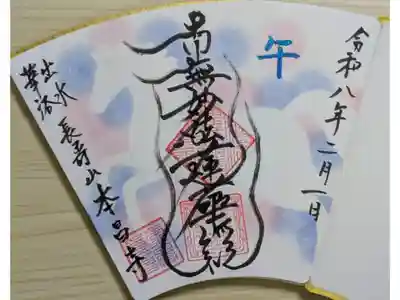 令和八年二月一日
午
南無妙法蓮華経
出水
華洛 長寿山 本昌寺